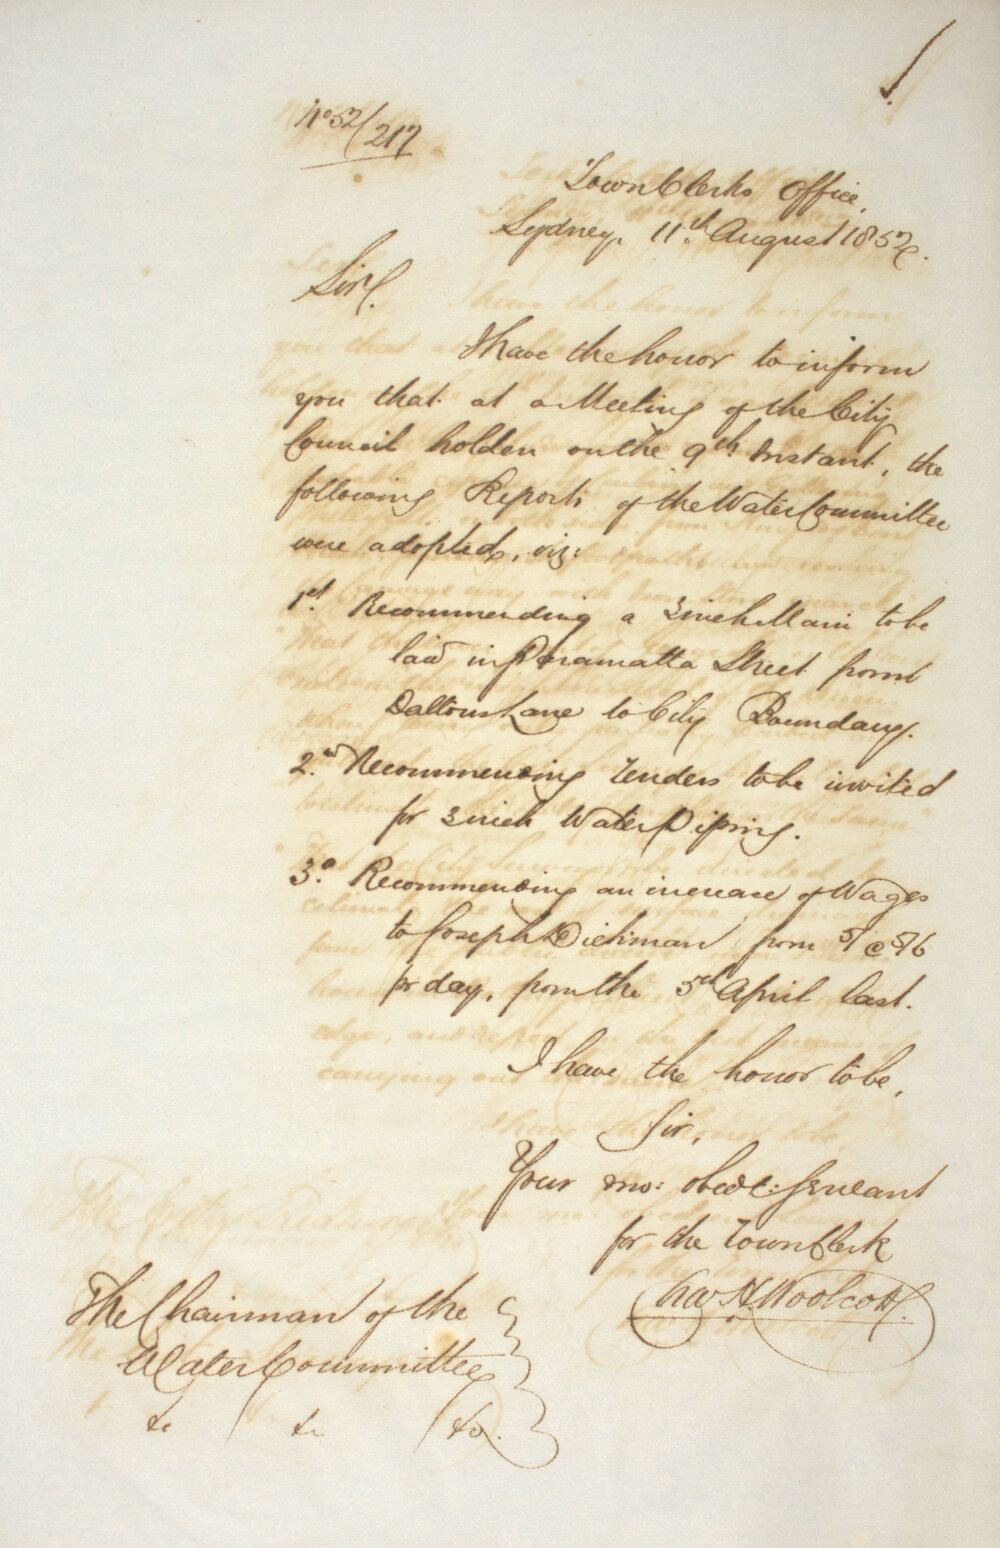 No 52/217
Town Clerks Office,
Sydney, 11th August 1852.
Sir,
I have the honor to inform
you that at a Meeting of the City
Council holden on the 9th Instant, the
following Reports of the Water Committee
were adopted, viz:
1st. Recommending a 3 inch Main to be
laid in Paramatta Street from
Daltons Lane to City Boundary.
2nd Recommending Tenders to be invited
for 3 inch Water Piping.
3d. Recommending an increase of Wages
to Joseph Dickman from 5/ @ 5/6
pr day, from the 5th April last.
I have the honor to be,
Sir,
Your mo: obedt: Servant
for the Town Clerk
Chas H Woolcott
The Chairman of the
Water Committee
&c &c &c.